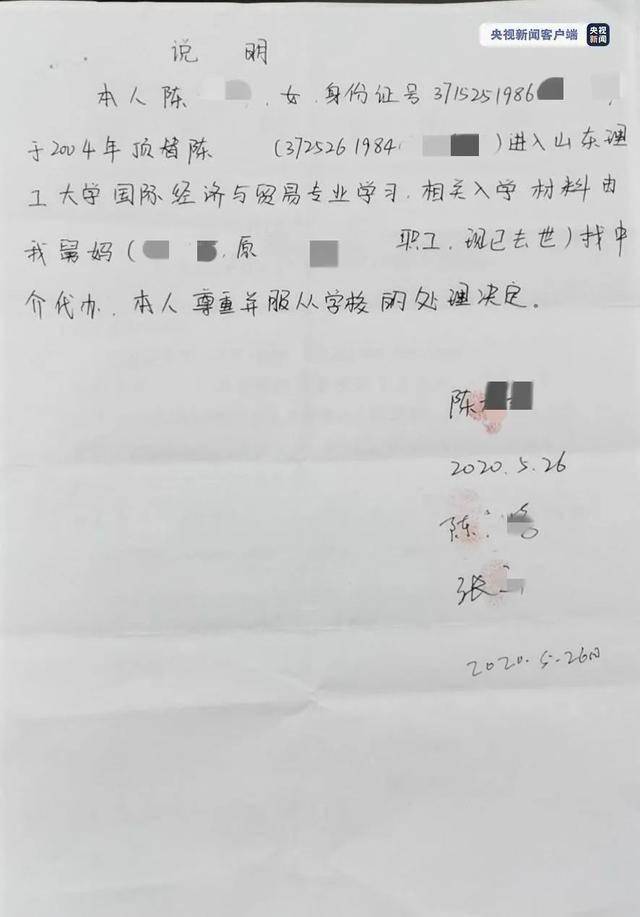 央视新闻客户端 央视新闻
说 明
本人陈 , 女, 身份证号 3715251986 ,
于2004年顶替陈 (3725261984 )进入山东理
工大学国际经济与贸易专业学习, 相关入学材料由
我舅妈( , 原 职工, 现已去世)找中
介代办, 本人尊重并服从学校的处理决定。
陈
2020.5.26
陈
张
2020.5.26日